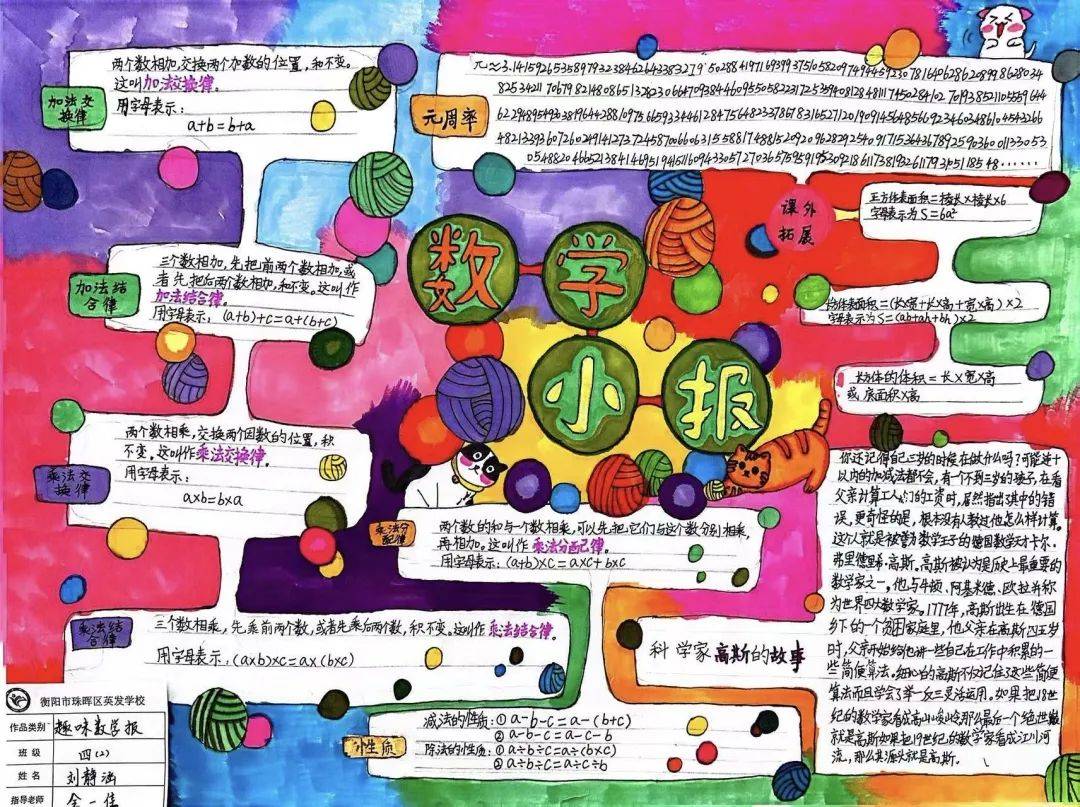 两个数相加,交换两个加数的位置,和不变。
这叫加法交换律。
用字母表示:
a+b=b+a
加法交
换律
圆周率
加法结
合律
三个数相加,先把前两个数相加,或
者先把后两个数相加,和不变。这叫作
加法结合律。
用字母表示:(a+b)+c=a+(b+c)
数学
小报
课外
拓展
正方体表面积=棱长×棱长×6
字母表示为S=6a²
长方体表面积=(长×宽+长×高+宽×高)×2
字母表示为S=(ab+ah+bh)×2
长方体的体积=长×宽×高
或底面积×高
乘法交
换律
两个数相乘,交换两个因数的位置,积
不变。这叫作乘法交换律。
用字母表示:
a×b=b×a
乘法分
配律
两个数的和与一个数相乘,可以先把它们与这个数分别相乘,
再相加。这叫作乘法分配律。
用字母表示:(a+b)×c=a×c+b×c
乘法结
合律
三个数相乘,先乘前两个数,或者先乘后两个数,积不变。这叫作乘法结合律。
用字母表示:(a×b)×c=a×(b×c)
性质
减法的性质:①a-b-c=a-(b+c)
②a-b-c=a-c-b
除法的性质:①a÷b÷c=a÷(b×c)
②a÷b÷c=a÷c÷b
科学家高斯的故事
你还记得自己三岁的时候在做什么吗?可能连十
以内的加减法都不会,有一个不到三岁的孩子,在看
父亲计算工人们的工资时,居然指出其中的错
误,更奇怪的是,根本没有人教过他怎么样计算。
这个人就是被誉为数学王子的德国数学天才卡尔·
弗里德里希·高斯。高斯被认为是历史上最重要的
数学家之一,他与牛顿、阿基米德、欧拉并称
为世界四大数学家。1777年,高斯出生在德国
乡下的一个贫困家庭里,他父亲在高斯四五岁
时,父亲开始给他讲一些自己在工作中积累的一
些简便算法。细心的高斯不仅记住了这些简便
算法而且学会了举一反三灵活运用。如果把18世
纪的数学家看成高山峻岭那么最后一个绝世巅
就是高斯如果把19世纪的数学家看成江川河
流,那么其源头就是高斯。
衡阳市珠晖区英发学校
作品类别 趣味数学报
班级 四(2)
姓名 刘静涵
指导老师